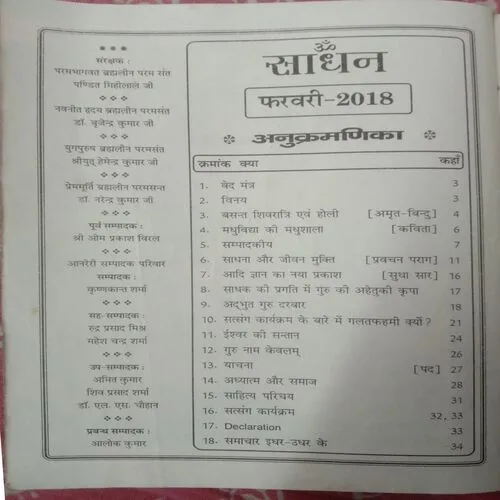 संरक्षक :
परमभागवत ब्रह्मलीन परम संत
पण्डित मिहीलाल जी
नवनीत हृदय ब्रह्मलीन परमसंत
डॉ. बृजेन्द्र कुमार जी
युगपुरुष ब्रह्मलीन परमसंत
श्रीयुत् हेमेन्द्र कुमार जी
प्रेममूर्ति ब्रह्मलीन परमसन्त
डॉ. नरेन्द्र कुमार जी
पूर्व सम्पादक :
श्री ओम प्रकाश विरल
आनरेरी सम्पादक परिवार
सम्पादक :
कृष्णकान्त शर्मा
सह-सम्पादक :
रुद्र प्रसाद मिश्र
महेश चन्द्र शर्मा
उप-सम्पादक :
अमित कुमार
शिव प्रसाद शर्मा
डॉ. एल. एस. चौहान
प्रबन्ध सम्पादक :
आलोक कुमार
ॐ
साधन
फरवरी-2018
अनुक्रमणिका
क्रमांक क्या कहाँ
1. वेद मंत्र 3
2. विनय 3
3. बसन्त शिवरात्रि एवं होली [अमृत-विन्दु] 4
4. मधुविद्या की मधुशाला [कविता] 6
5. सम्पादकीय 7
6. साधना और जीवन मुक्ति [प्रवचन पराग] 11
7. आदि ज्ञान का नया प्रकाश [सुधा सार] 16
8. साधक की प्रगति में गुरु की अहेतुकी कृपा 17
9. अद्भुत गुरु दरबार 18
10. सत्संग कार्यक्रम के बारे में गलतफहमी क्यों? 21
11. ईश्वर की सन्तान 24
12. गुरु नाम केवलम् 26
13. याचना [पद] 27
14. अध्यात्म और समाज 28
15. साहित्य परिचय 31
16. सत्संग कार्यक्रम 32, 33
17. Declaration 33
18. समाचार इधर-उधर के 34